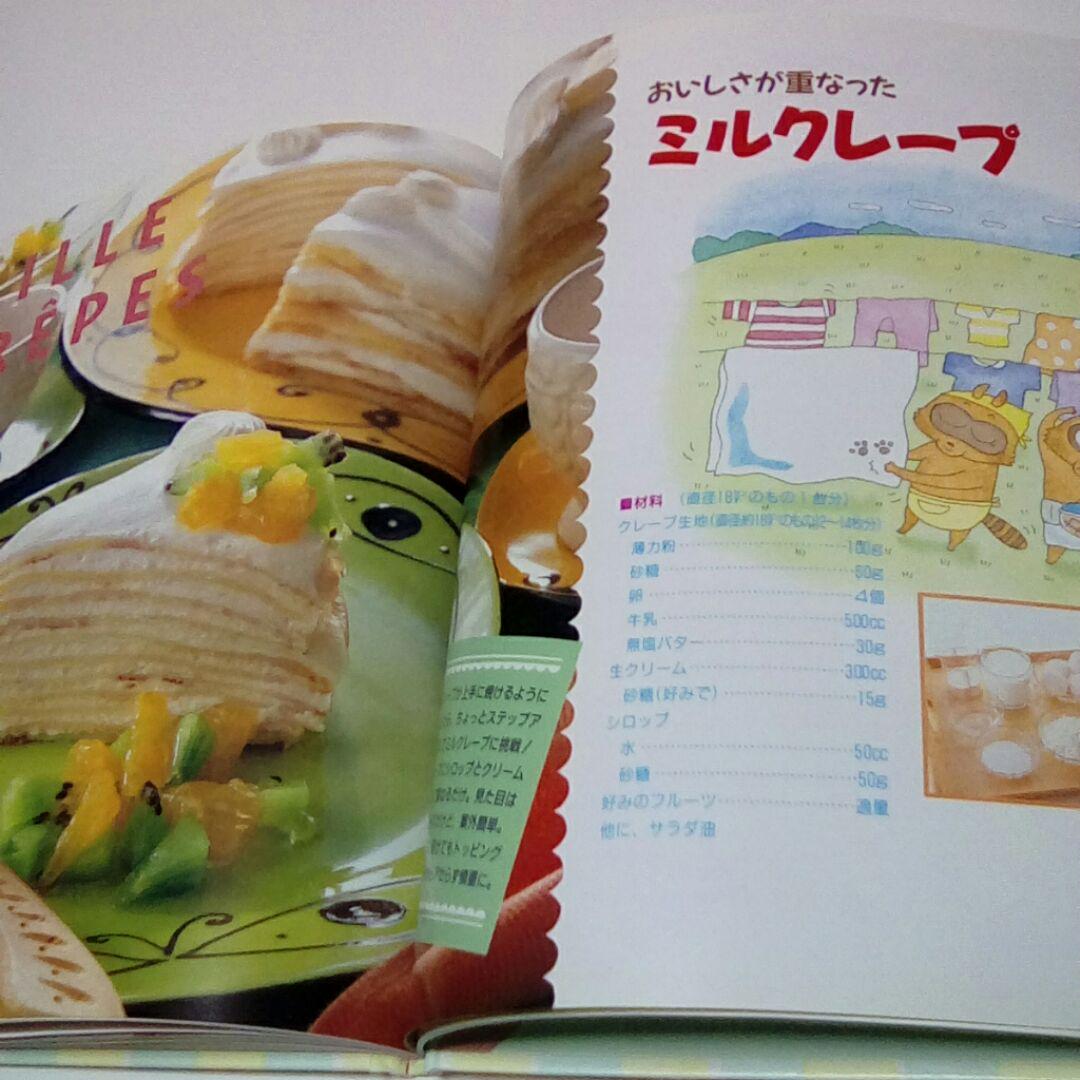 ILLE
RÊPES
が上手に焼けるように
ちょっとステップア
ミルクレープに挑戦!
シロップとクリーム
るだけ。見た目は
けど、案外簡単。
けてもトッピング
ず慎重に。
おいしさが重なった
ミルクレープ
■材料 (直径18㌢のもの1台分)
クレープ生地(直径約18㌢のもの12〜14枚分)
薄力粉 180g
砂糖 50g
卵 4個
牛乳 500cc
無塩バター 30g
生クリーム 300cc
砂糖(好みで) 15g
シロップ
水 50cc
砂糖 50g
好みのフルーツ 適量
他に、サラダ油